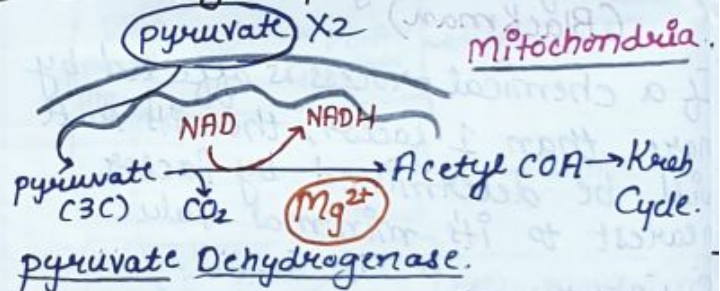 pyruvate X2
Mitochondria.
NAD NADH
pyruvate Acetyl COA → Kreb
(3C) CO₂ Mg²⁺ Cycle.
pyruvate Dehydrogenase.